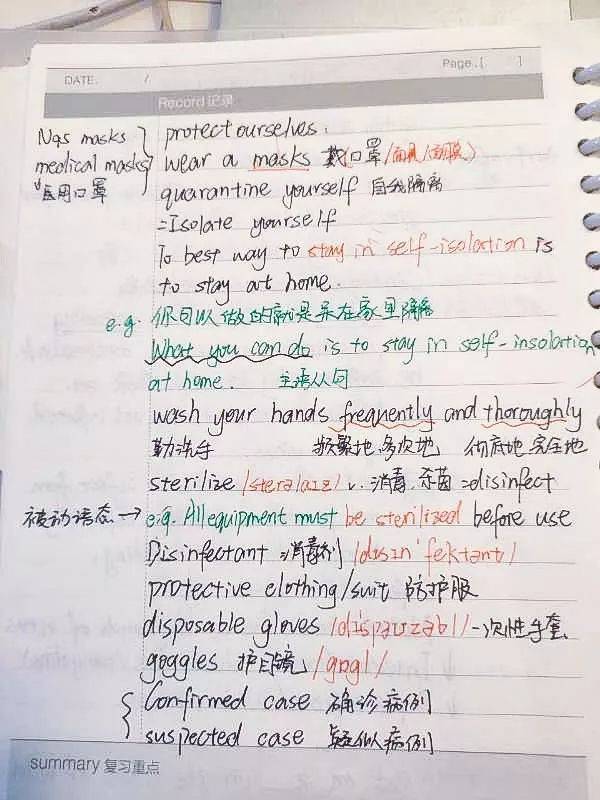 DATE. /
Page.[ ]
Record 记录
protect ourselves.
N95 masks
medical masks
医用口罩
wear a masks 戴(口罩/面具/面膜)
quarantine yourself 自我隔离
=Isolate yourself
To best way to stay in self-isolation is
to stay at home.
e.g. 你可以做的就是呆在家里隔离
What you can do is to stay in self-insolation
at home. 主语从句
wash your hands frequently and thoroughly
勤洗手 频繁地,多次地 彻底地 完全地
sterilize /sterəlaiz/ v. 消毒.杀菌 =disinfect
被动语态 → e.g. All equipment must be sterilized before use
Disinfectant 消毒剂 /disin'fektənt/
protective clothing/suit 防护服
disposable gloves /di'spəuzəbl/ 一次性手套
goggles 护目镜 /gɒgl/
Confirmed case 确诊病例
suspected case 疑似病例
summary 复习重点